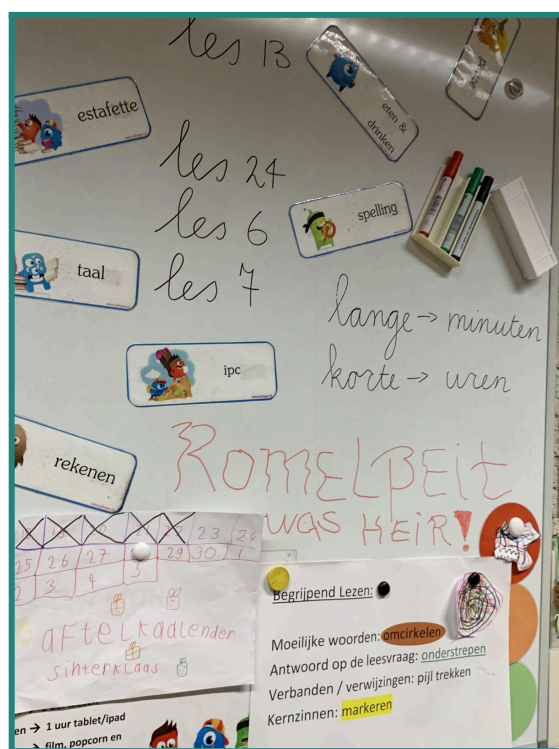 les 13
estafette
eten &
drinken
les 24
les 6
spelling
taal
les 7
lange → minuten
korte → uren
ipc
rekenen
ROMELPEIT
WAS HEIR!
23 24
25 26 27 29 30 1
2 3 4 5
aFTELKaALENder
SiNTERKLaas
Begrijpend Lezen:
Moeilijke woorden: omcirkelen
Antwoord op de leesvraag: onderstrepen
Verbanden / verwijzingen: pijl trekken
Kernzinnen: markeren
en → 1 uur tablet/ipad
→ film, popcorn en